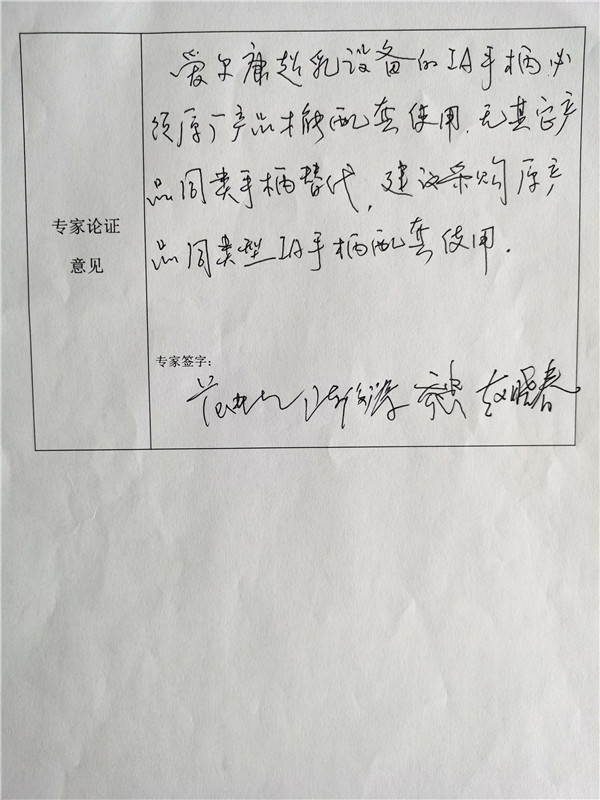 爱尔康超乳设备的IA手柄必
须原厂产品才能配套使用.无其它产
品同类手柄替代,建议采购原产
品同类型IA手柄配套使用.
专家论证
意见
专家签字:
赵晓春